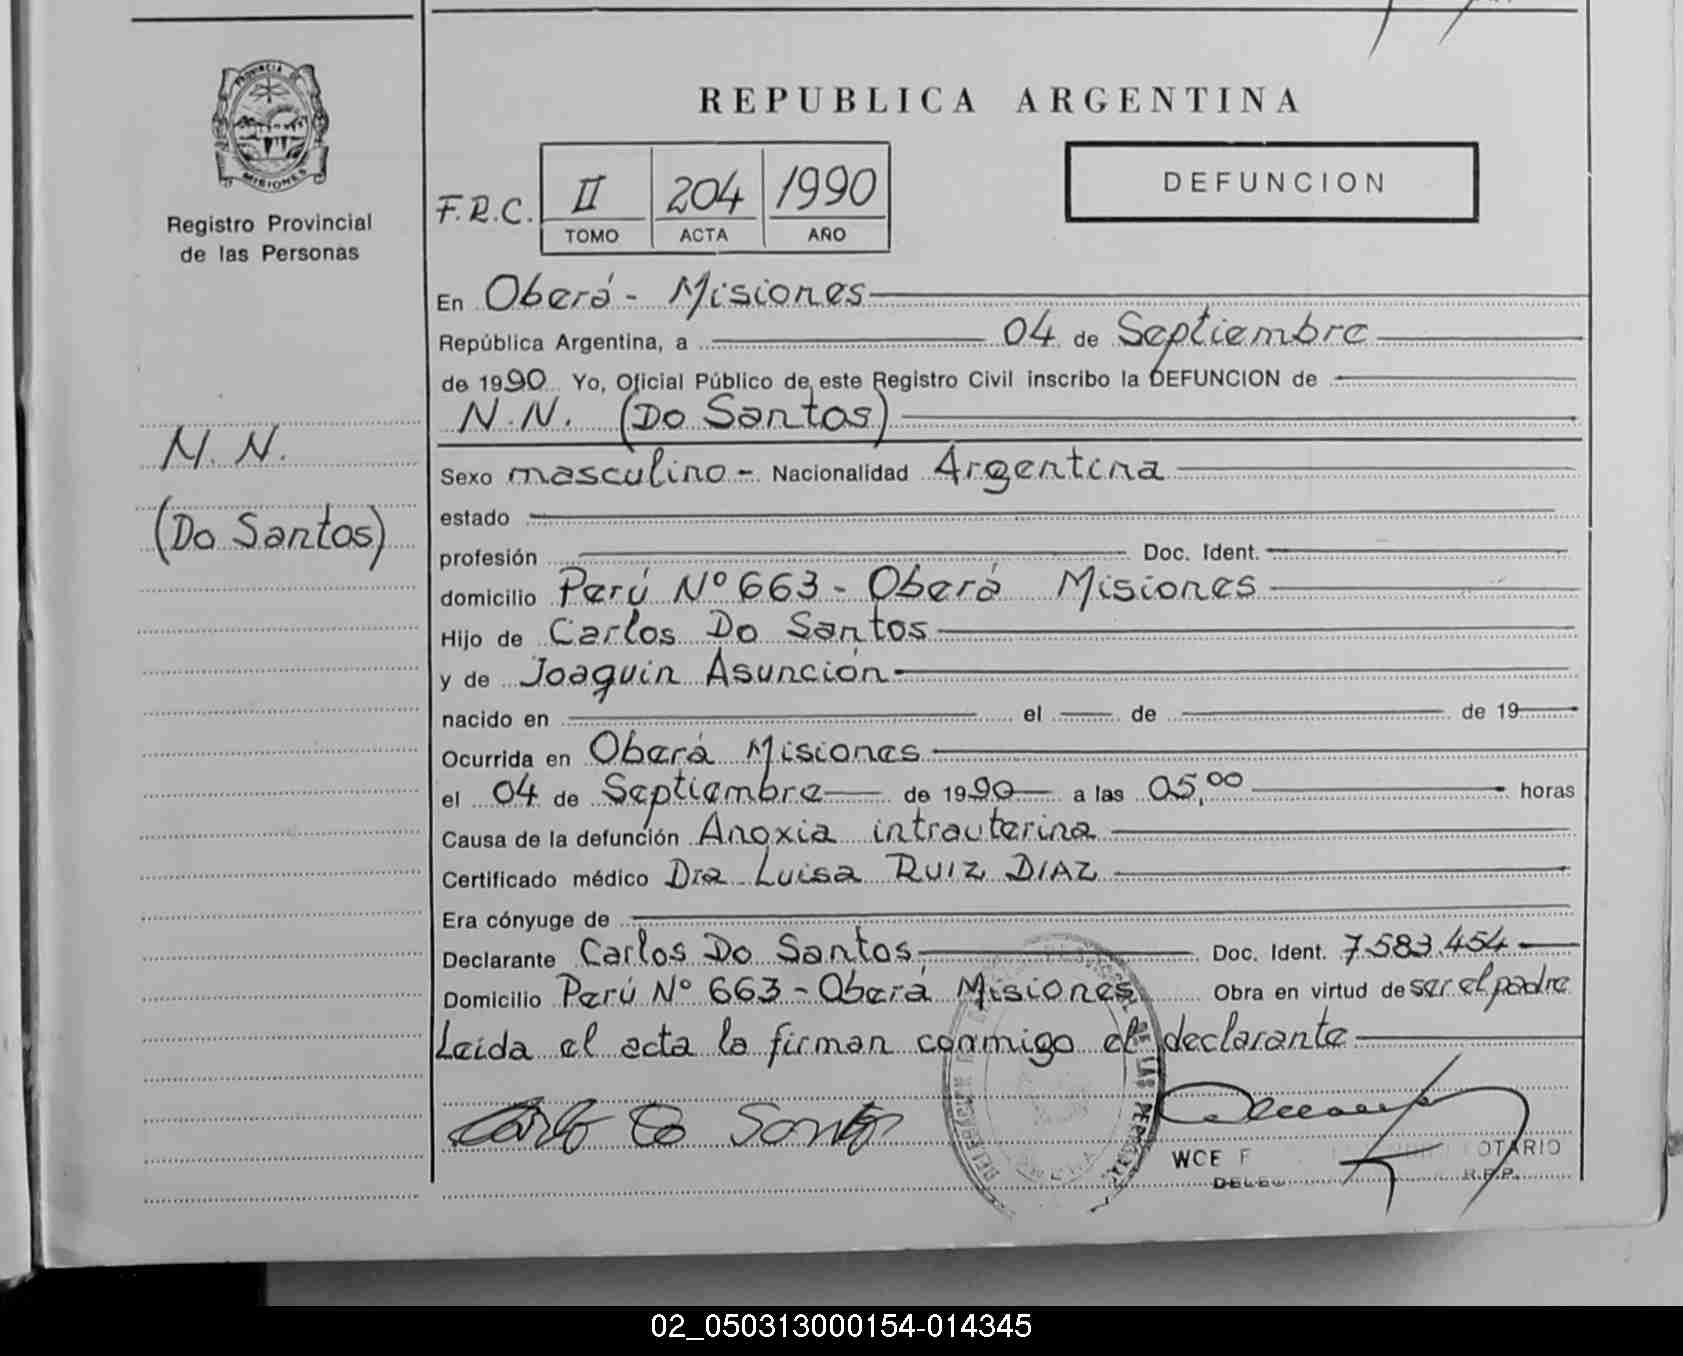 REPUBLICA ARGENTINA
PROVINCIA DE
MISIONES
Registro Provincial
de las Personas
F.R.C. II 204 1990
TOMO ACTA AÑO
DEFUNCION
En Oberá - Misiones
República Argentina, a 04 de Septiembre
de 1990 Yo, Oficial Público de este Registro Civil inscribo la DEFUNCION de
N.N. (Do Santos)
N. N.
(Do Santos)
Sexo masculino - Nacionalidad Argentina
estado
profesión Doc. Ident.
domicilio Perú Nº 663 - Oberá Misiones
Hijo de Carlos Do Santos
y de Joaquin Asunción
nacido en el de de 19
Ocurrida en Oberá Misiones
el 04 de Septiembre de 1990 a las 05,00 horas
Causa de la defunción Anoxia intrauterina
Certificado médico Dra Luisa RUIZ DIAZ
Era cónyuge de
Declarante Carlos Do Santos Doc. Ident. 7.583.454
Domicilio Perú Nº 663 - Oberá Misiones Obra en virtud de ser el padre
Leída el acta la firman conmigo el declarante
Carlos Do Santos
DELEGACION DE LAS
WCE F OTARIO
DELEG R.P.P.
02_050313000154-014345